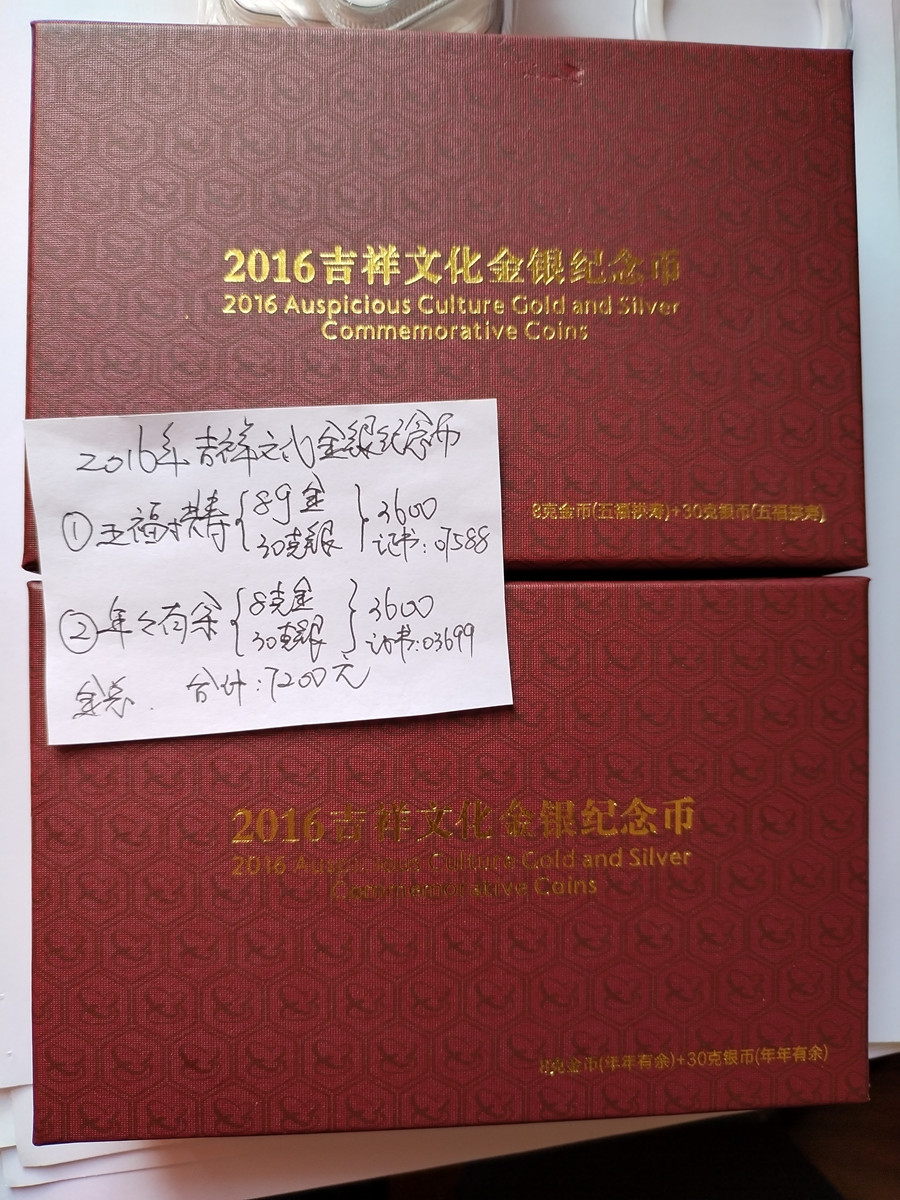 2016吉祥文化金银纪念币
2016 Auspicious Culture Gold and Silver
Commemorative Coins
8克金币(五福拱寿)+30克银币(五福拱寿)
2016年吉祥文化金银纪念币
①五福拱寿{8g金 30克银}3600 证书:01588
②年々有余{8克金 30克银}3600 证书:03699
合计:7200元
2016吉祥文化金银纪念币
2016 Auspicious Culture Gold and Silver
Commemorative Coins
8克金币(年年有余)+30克银币(年年有余)